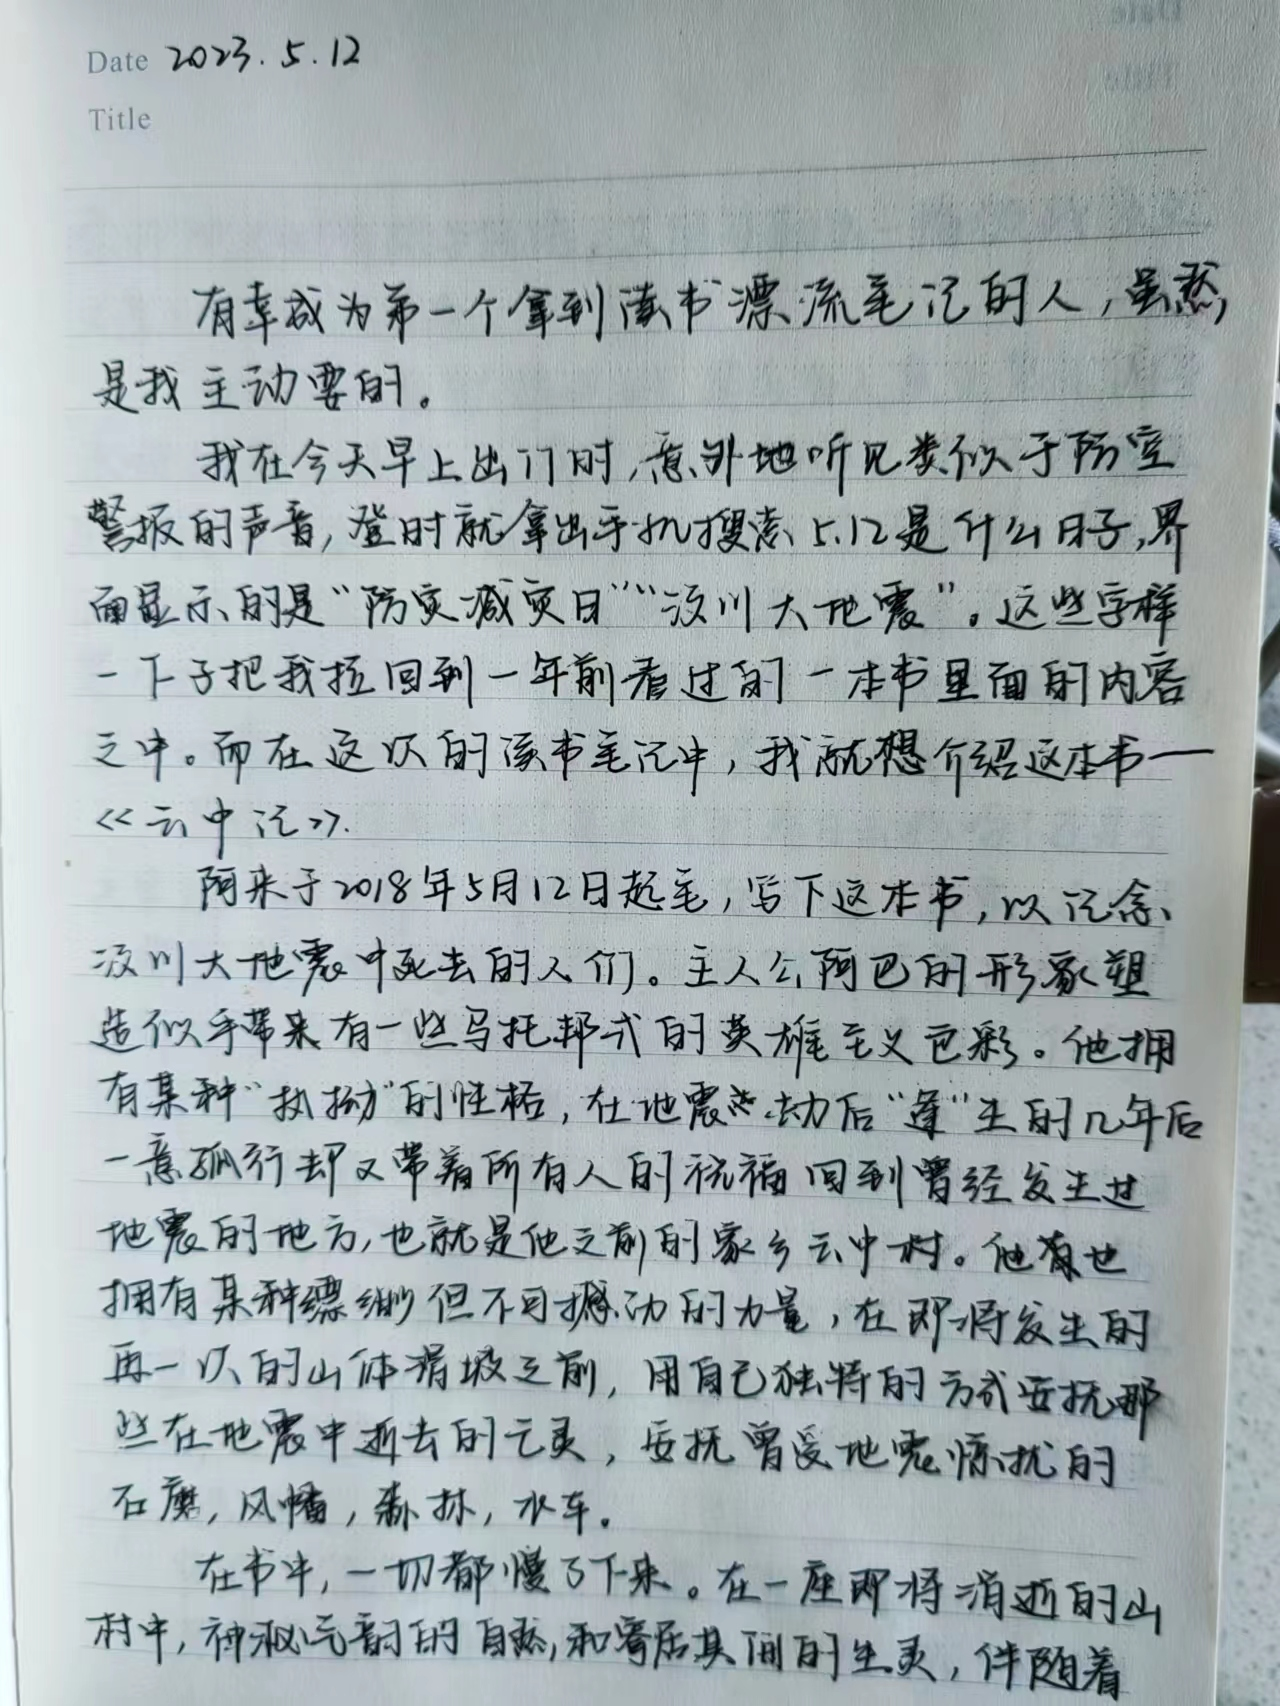 Date 2023.5.12
Title
有幸成为第一个拿到读书漂流笔记的人，虽然
是我主动要的。
我在今天早上出门时，意外地听见类似于防空
警报的声音，登时就拿出手机搜索5.12是什么日子，界
面显示的是“防灾减灾日”“汶川大地震”。这些字样
一下子把我拉回到一年前看过的一本书里面的内容
之中。而在这次的读书笔记中，我就想介绍这本书——
《云中记》.
阿来于2018年5月12日起笔，写下这本书，以记念
汶川大地震中死去的人们。主人公阿巴的形象塑
造似乎带来有一些乌托邦式的英雄主义色彩。他拥
有某种“执拗”的性格，在地震劫后“蓬”生的几年后
一意孤行却又带着所有人的祝福回到曾经发生过
地震的地方，也就是他之前的家乡云中村。他也
拥有某种缥缈但不可撼动的力量，在即将发生的
再一次的山体滑坡之前，用自己独特的方式安抚那
些在地震中逝去的亡灵，安抚曾受地震惊扰的
石磨，风幡，森林，水车。
在书中，一切都慢了下来。在一座即将消逝的山
村中，神秘气韵的自然，和寄居其间的生灵，伴随着